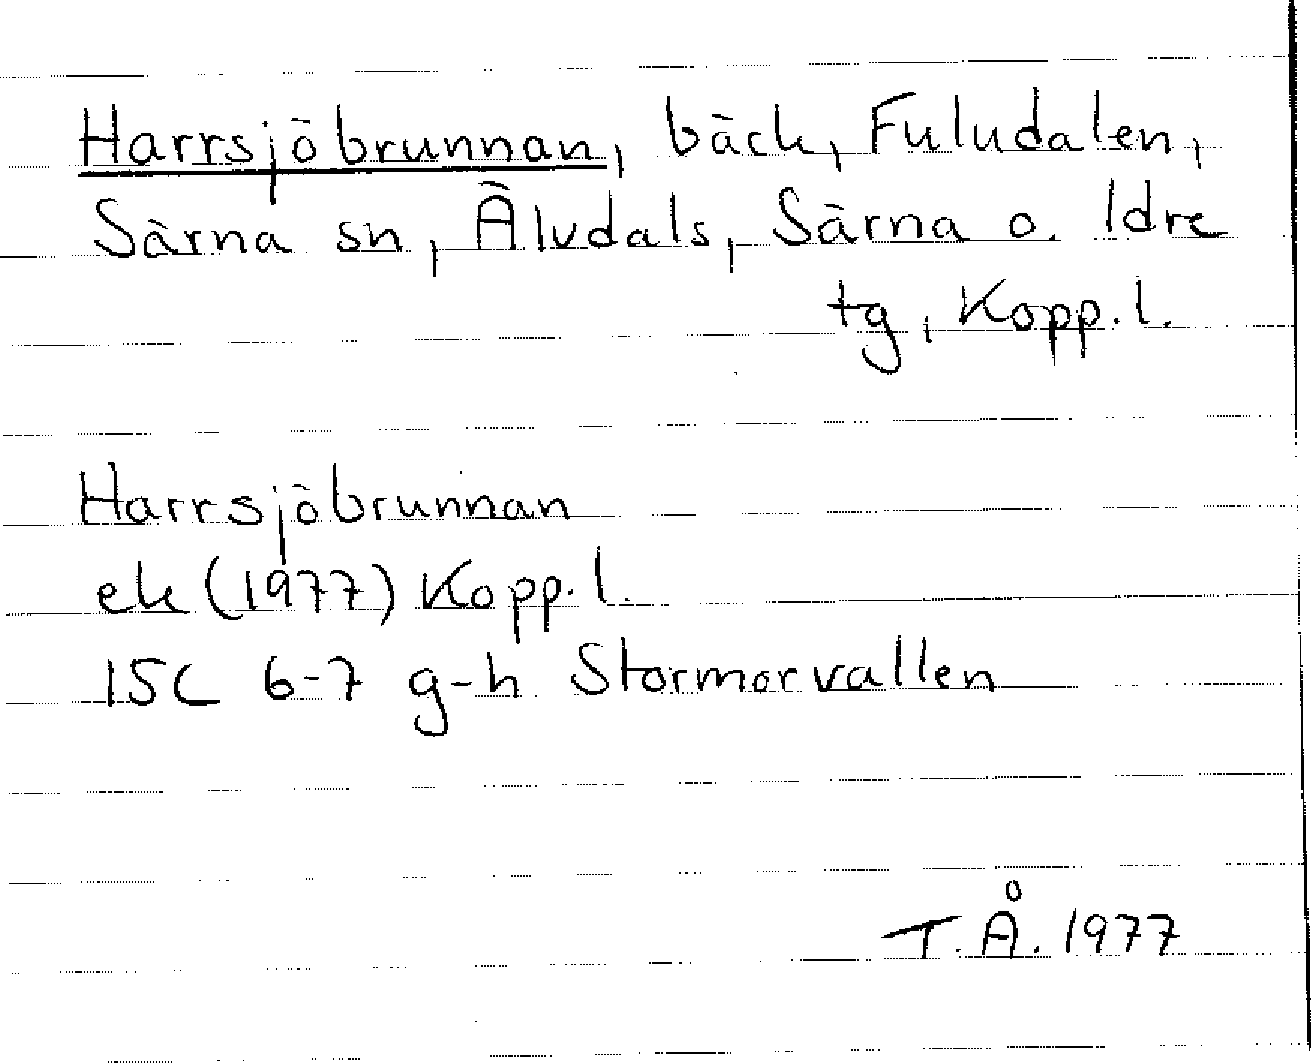 Harrsjöbrunnan, bäck, Fuludalen,
Särna sn, Älvdals, Särna o. Idre
tg, Kopp. l.
Harrsjöbrunnan
ek (1977) Kopp. l.
15C 6-7 g-h Stormorvallen
T.Å. 1977